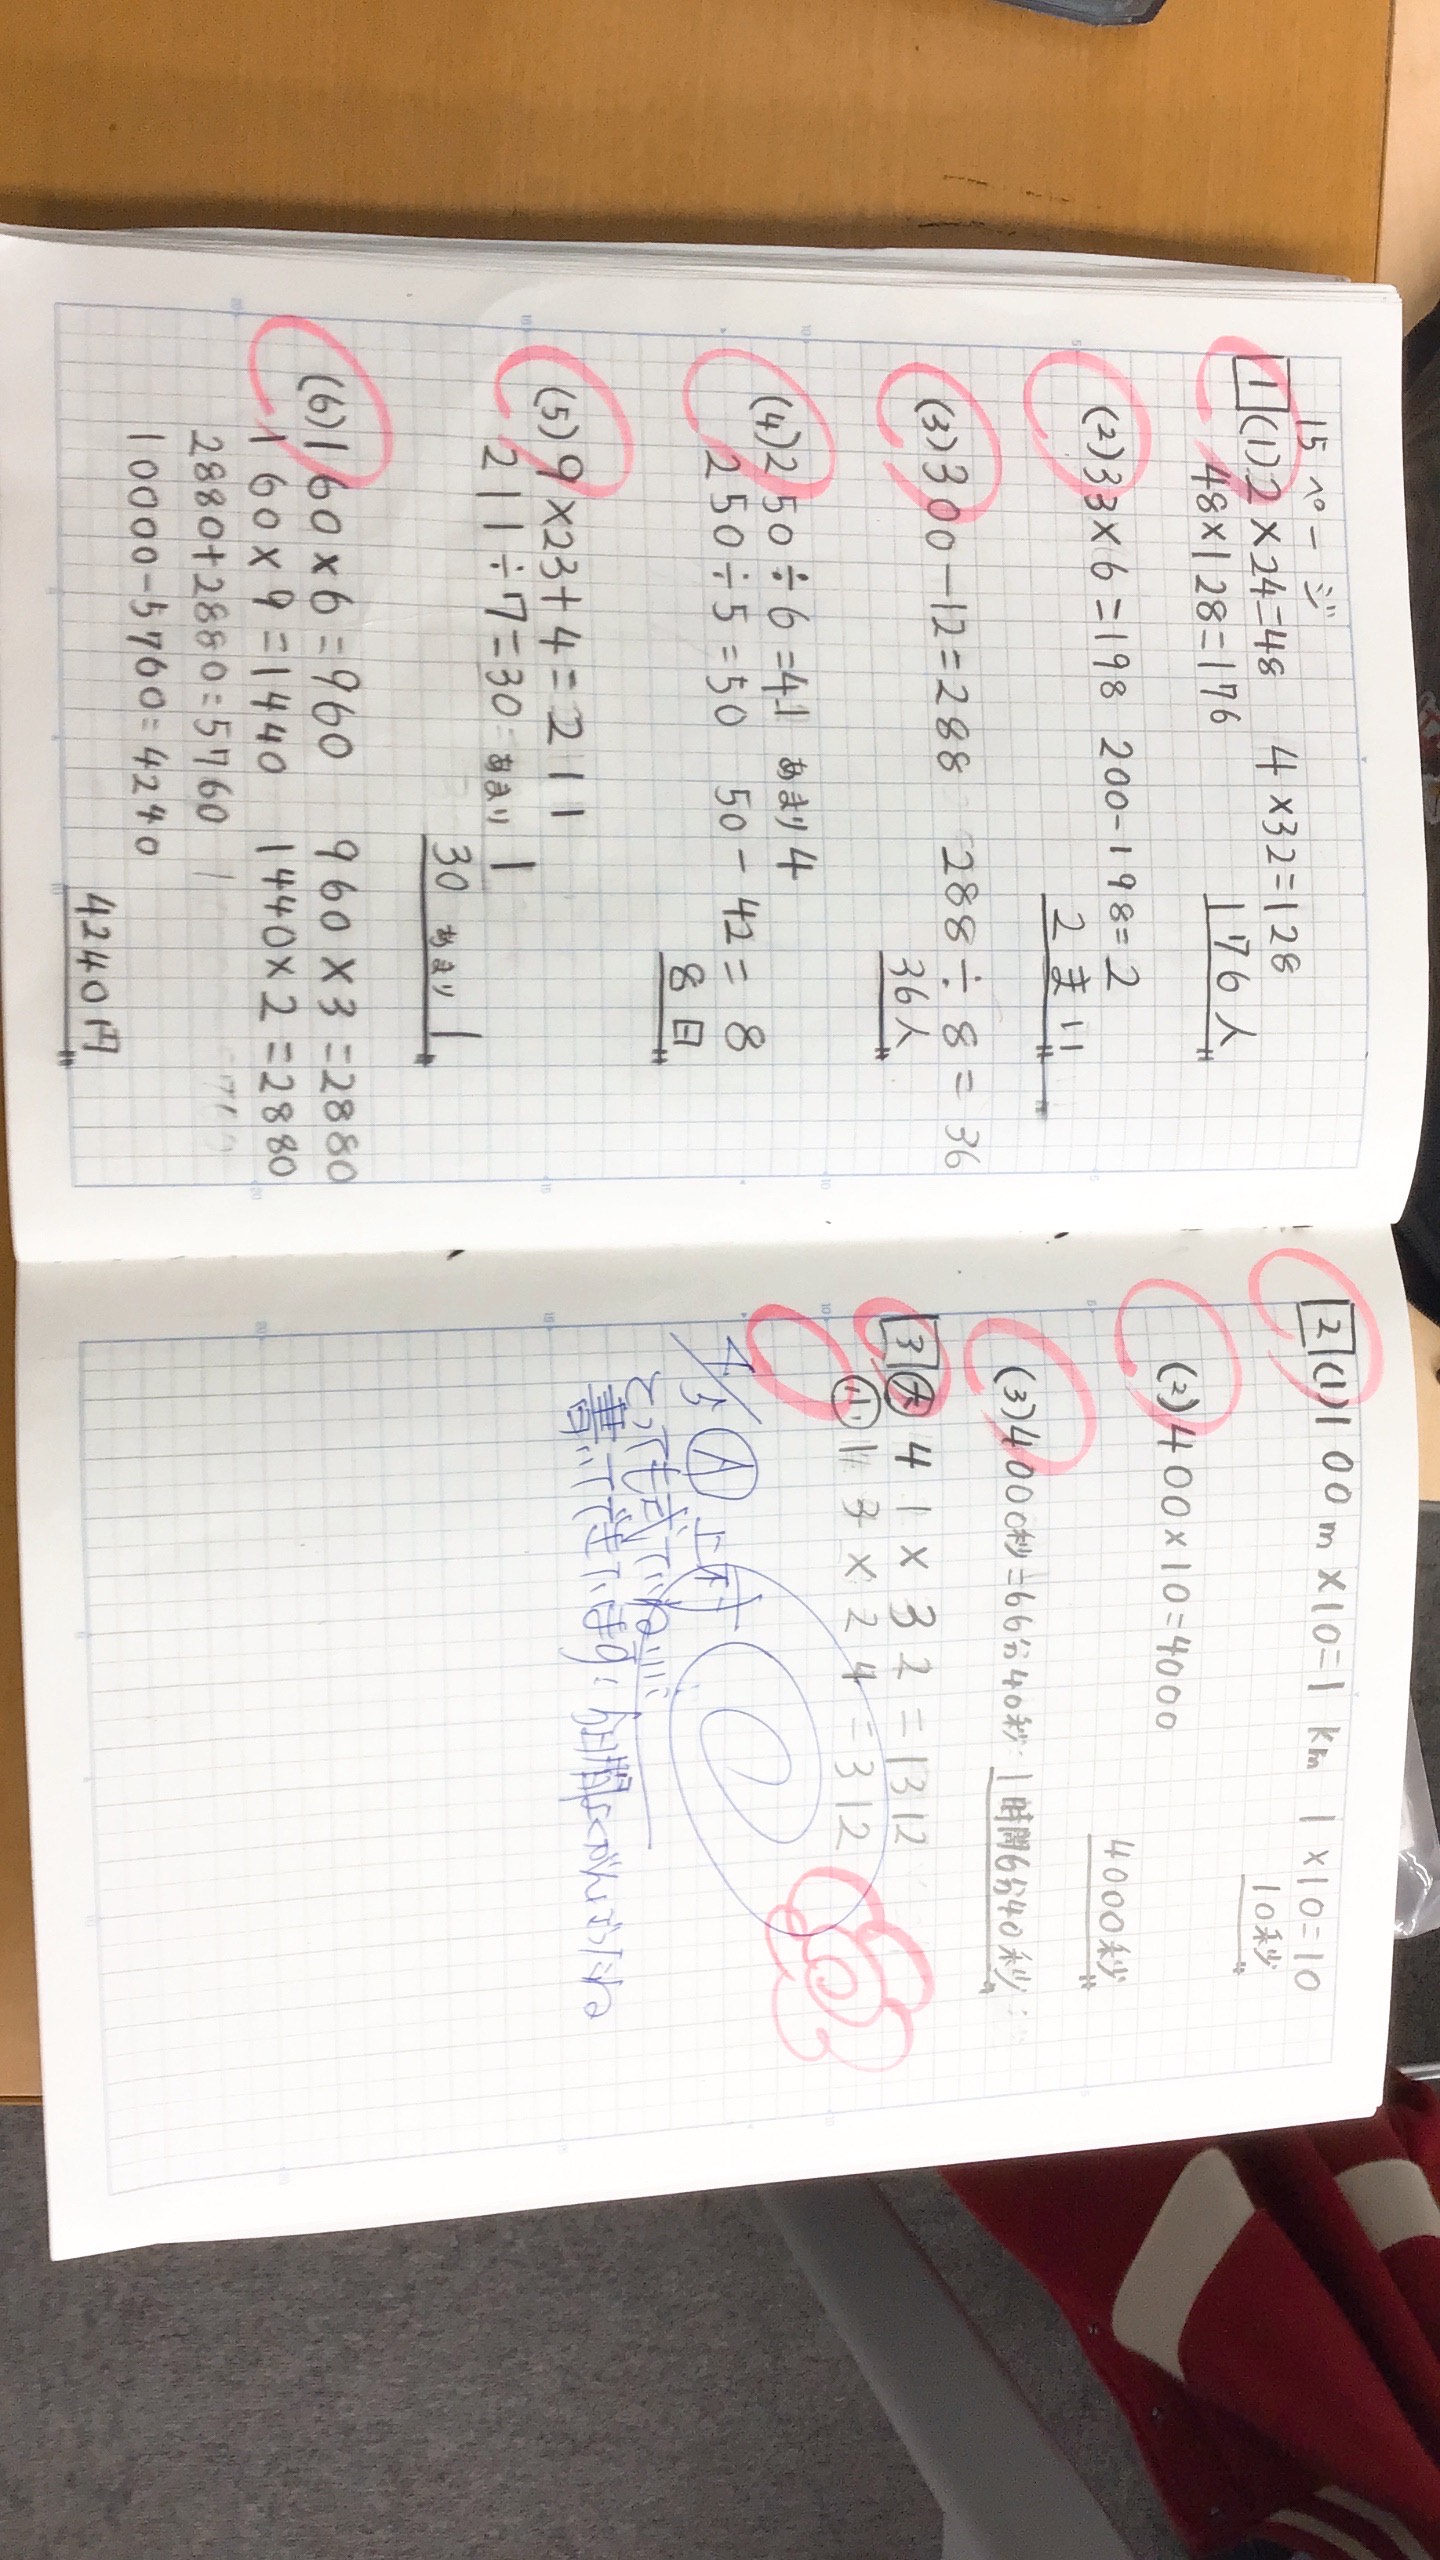 15ページ
1 (1) 2×24=48 4×32=128
48×128=176
176人
(2) 33×6=198 200-198=2
2まい
(3) 300-12=288 288÷8=36
36人
(4) 250÷6=41 あまり4
250÷5=50 50-42=8
8日
(5) 9×23+4=211
211÷7=30 あまり1
30 あまり1
(6) 160×6=960 960×3=2880
160×9=1440 1440×2=2880
2880+2880=5760
10000-5760=4240
4240円
2 (1) 100m×10=1km 1×10=10
10秒
(2) 400×10=4000
4000秒
(3) 4000秒=66分40秒
1時間6分40秒
3 大 41×32=1312
小 13×24=312
A 上村
とっても式でいねいに
書いています! 今日習よくがんばったね